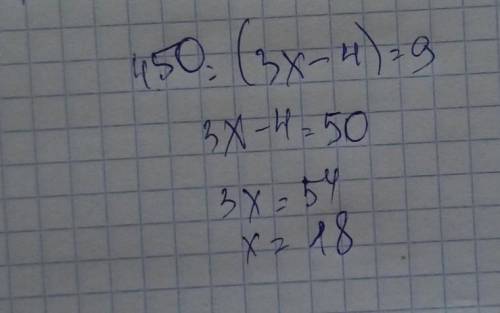 450:(3x-4)=9
3x-4=50
3x=54
x=18